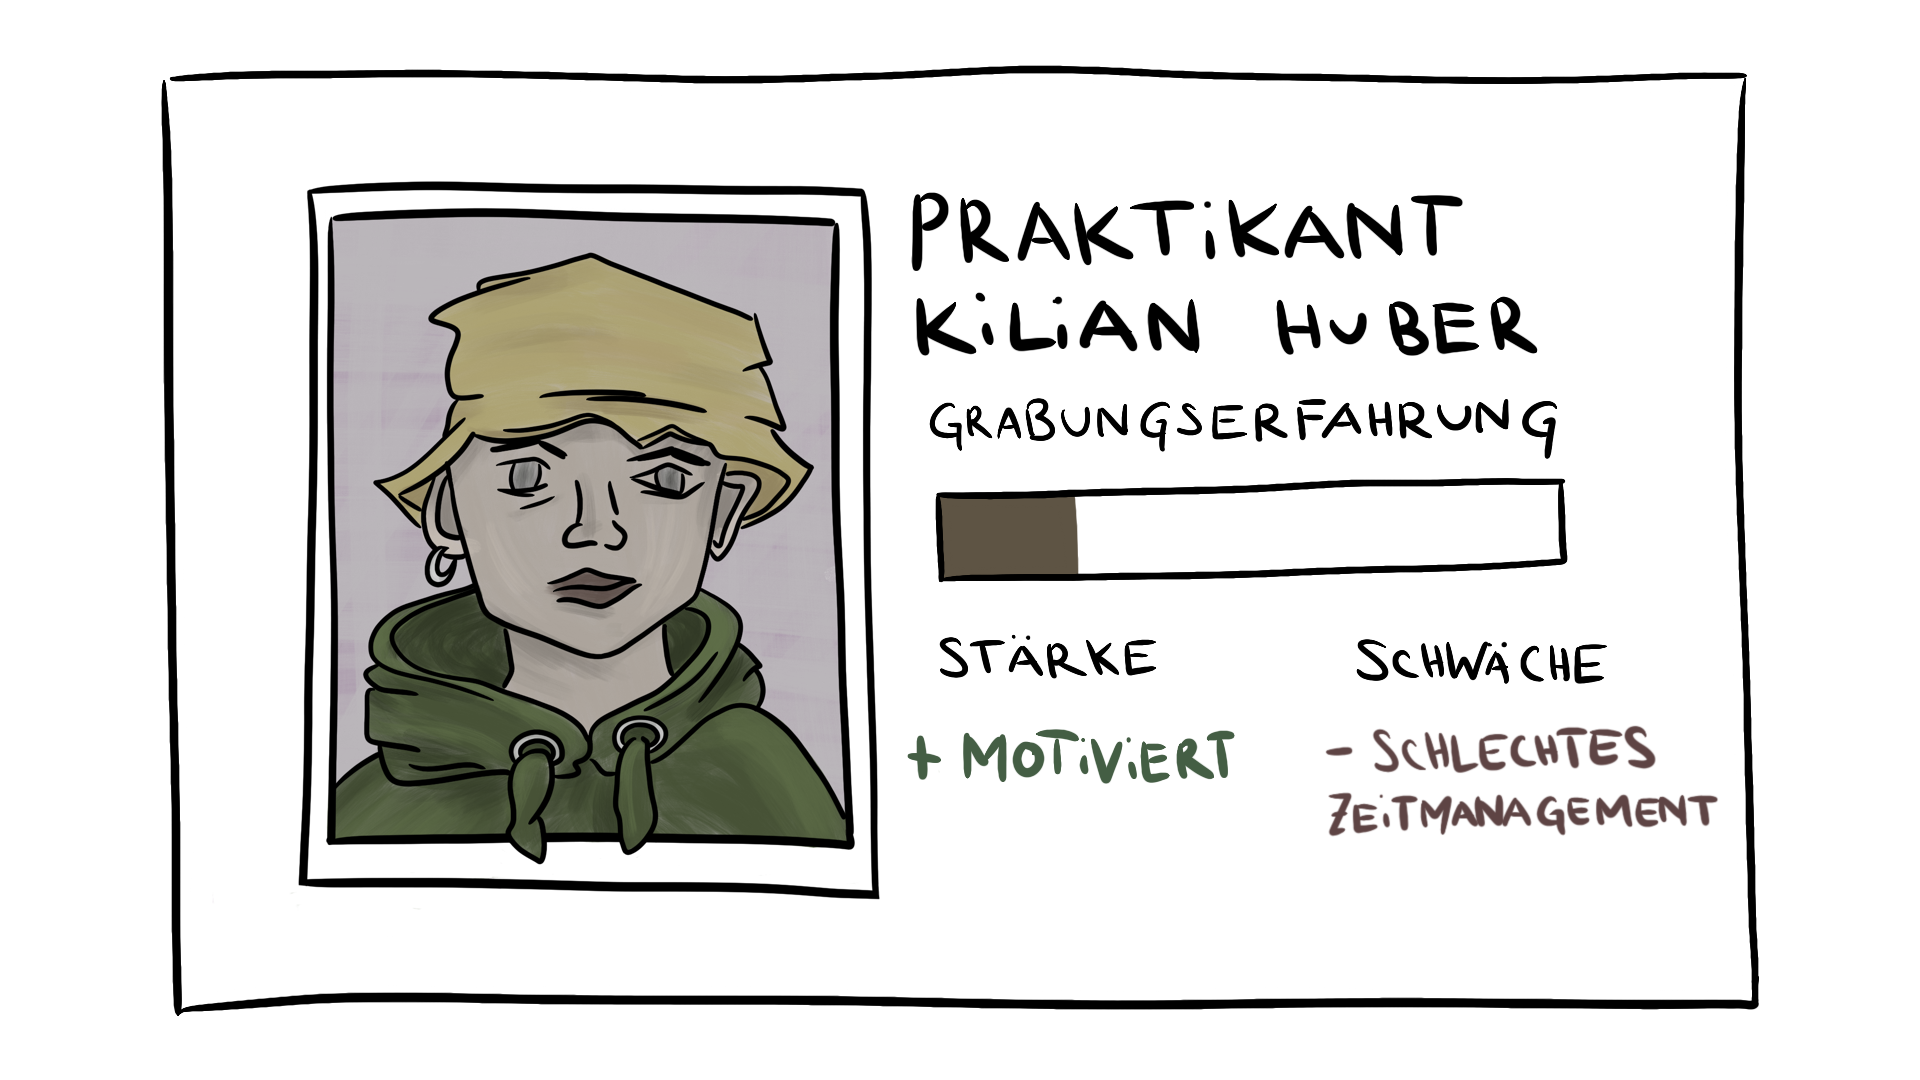 PRAKTiKANT
KiLiAN HUBER
GRABUNGSERFAHRUNG
STÄRKE SCHWÄCHE
+ MOTiViERT - SCHLECHTES
ZEiTMANAGEMENT